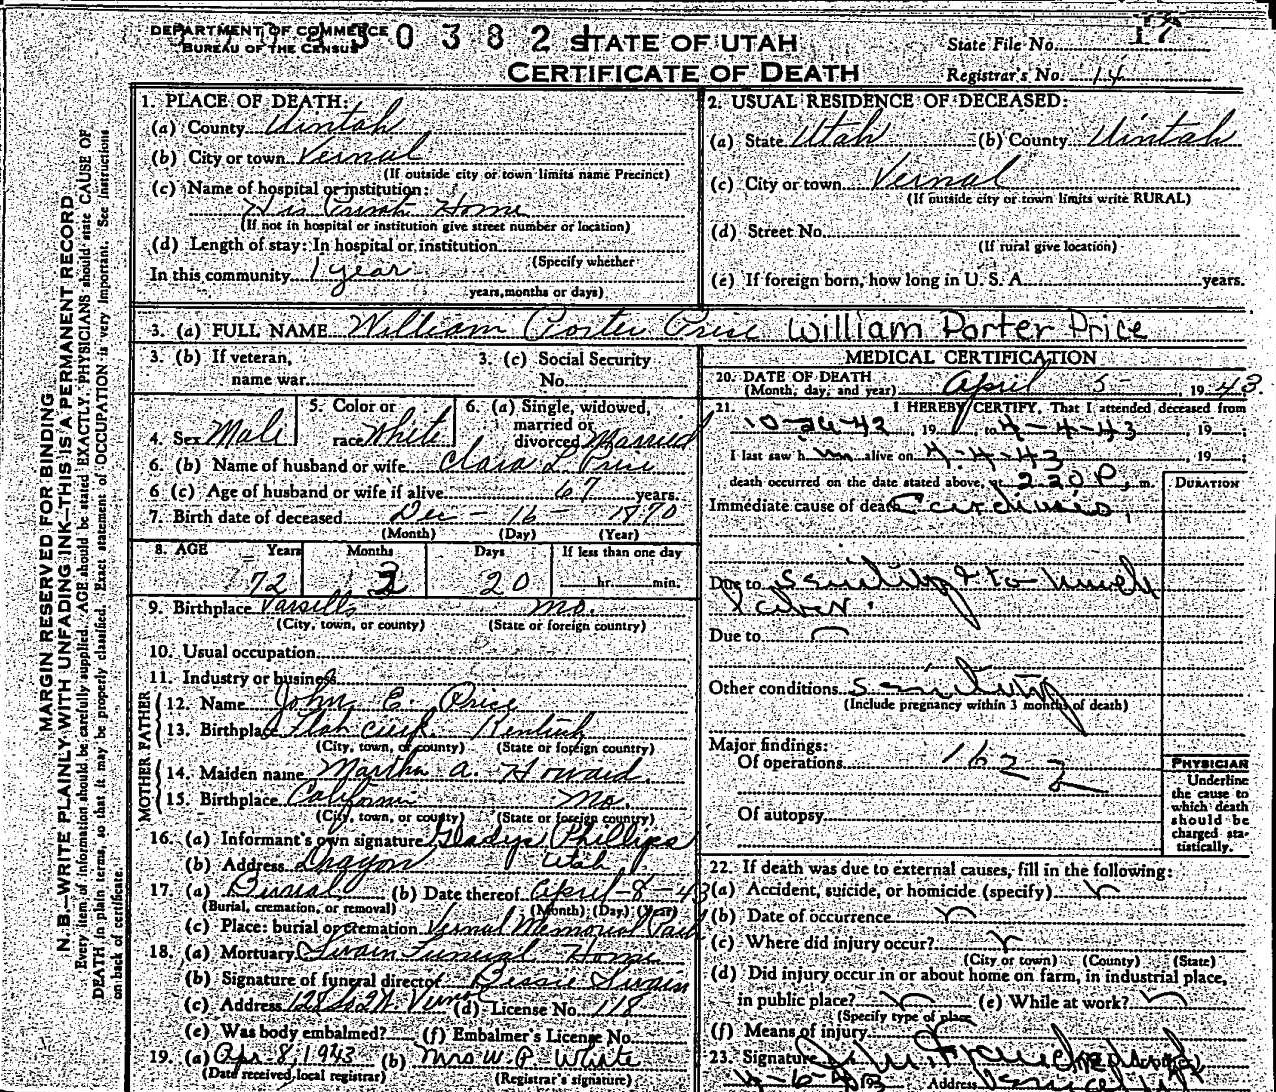 DEPARTMENT OF COMMERCE
BUREAU OF THE CENSUS
3 0 3 8 2
STATE OF UTAH
CERTIFICATE OF DEATH
State File No. 17
Registrar's No. 14
MARGIN RESERVED FOR BINDING
N. B.—WRITE PLAINLY WITH UNFADING INK—THIS IS A PERMANENT RECORD
Every item of information should be carefully supplied. AGE should be stated EXACTLY. PHYSICIANS should state CAUSE OF
DEATH in plain terms, so that it may be properly classified. Exact statement of OCCUPATION is very important. See instructions
on back of certificate.
1. PLACE OF DEATH:
(a) County Uintah
(b) City or town Vernal
(If outside city or town limits name Precinct)
(c) Name of hospital or institution:
His Home
(If not in hospital or institution give street number or location)
(d) Length of stay: In hospital or institution
(Specify whether
In this community 1 year
years, months or days)
2. USUAL RESIDENCE OF DECEASED:
(a) State Utah (b) County Uintah
(c) City or town Vernal
(If outside city or town limits write RURAL)
(d) Street No.
(If rural give location)
(e) If foreign born, how long in U. S. A. years.
3. (a) FULL NAME William Porter Price William Porter Price
3. (b) If veteran,
name war
3. (c) Social Security
No.
4. Sex Male
5. Color or
race White
6. (a) Single, widowed,
married or
divorced Married
6. (b) Name of husband or wife Clara L. Price
6 (c) Age of husband or wife if alive 67 years.
7. Birth date of deceased Dec - 16 - 1870
(Month) (Day) (Year)
8. AGE Years Months Days If less than one day
72 3 20 hr. min.
9. Birthplace Varsills Mo.
(City, town, or county) (State or foreign country)
10. Usual occupation
11. Industry or business
FATHER
12. Name John E. Price
13. Birthplace
(City, town, or county) (State or foreign country)
MOTHER
14. Maiden name Martha A. Howard
15. Birthplace California Mo.
(City, town, or county) (State or foreign country)
16. (a) Informant's own signature Gladys Phillips
(b) Address Utah
17. (a) Burial (b) Date thereof April-8-43
(Burial, cremation, or removal) (Month) (Day) (Year)
(c) Place: burial or cremation Vernal Memorial Park
18. (a) Mortuary Swain Funeral Home
(b) Signature of funeral director Bessie Swain
(c) Address Vernal (d) License No. 118
(e) Was body embalmed? (f) Embalmer's License No.
19. (a) Apr. 8, 1943 (b) Mrs W. P. White
(Date received local registrar) (Registrar's signature)
MEDICAL CERTIFICATION
20. DATE OF DEATH
(Month, day, and year) April 5- , 19 43.
21. I HEREBY CERTIFY, That I attended deceased from
10-26-42, 19 , to 4-4-43, 19 ;
I last saw h im alive on 4-4-43, 19 ;
death occurred on the date stated above, at 2 20 P. m.
DURATION
Immediate cause of death
Due to
Due to
Other conditions senility
(Include pregnancy within 3 months of death)
Major findings:
Of operations 162 2
Of autopsy
PHYSICIAN
Underline
the cause to
which death
should be
charged sta-
tistically.
22. If death was due to external causes, fill in the following:
(a) Accident, suicide, or homicide (specify)
(b) Date of occurrence
(c) Where did injury occur?
(City or town) (County) (State)
(d) Did injury occur in or about home on farm, in industrial place,
in public place? (e) While at work?
(Specify type of place
(f) Means of injury
23. Signature
4-6-43 Address